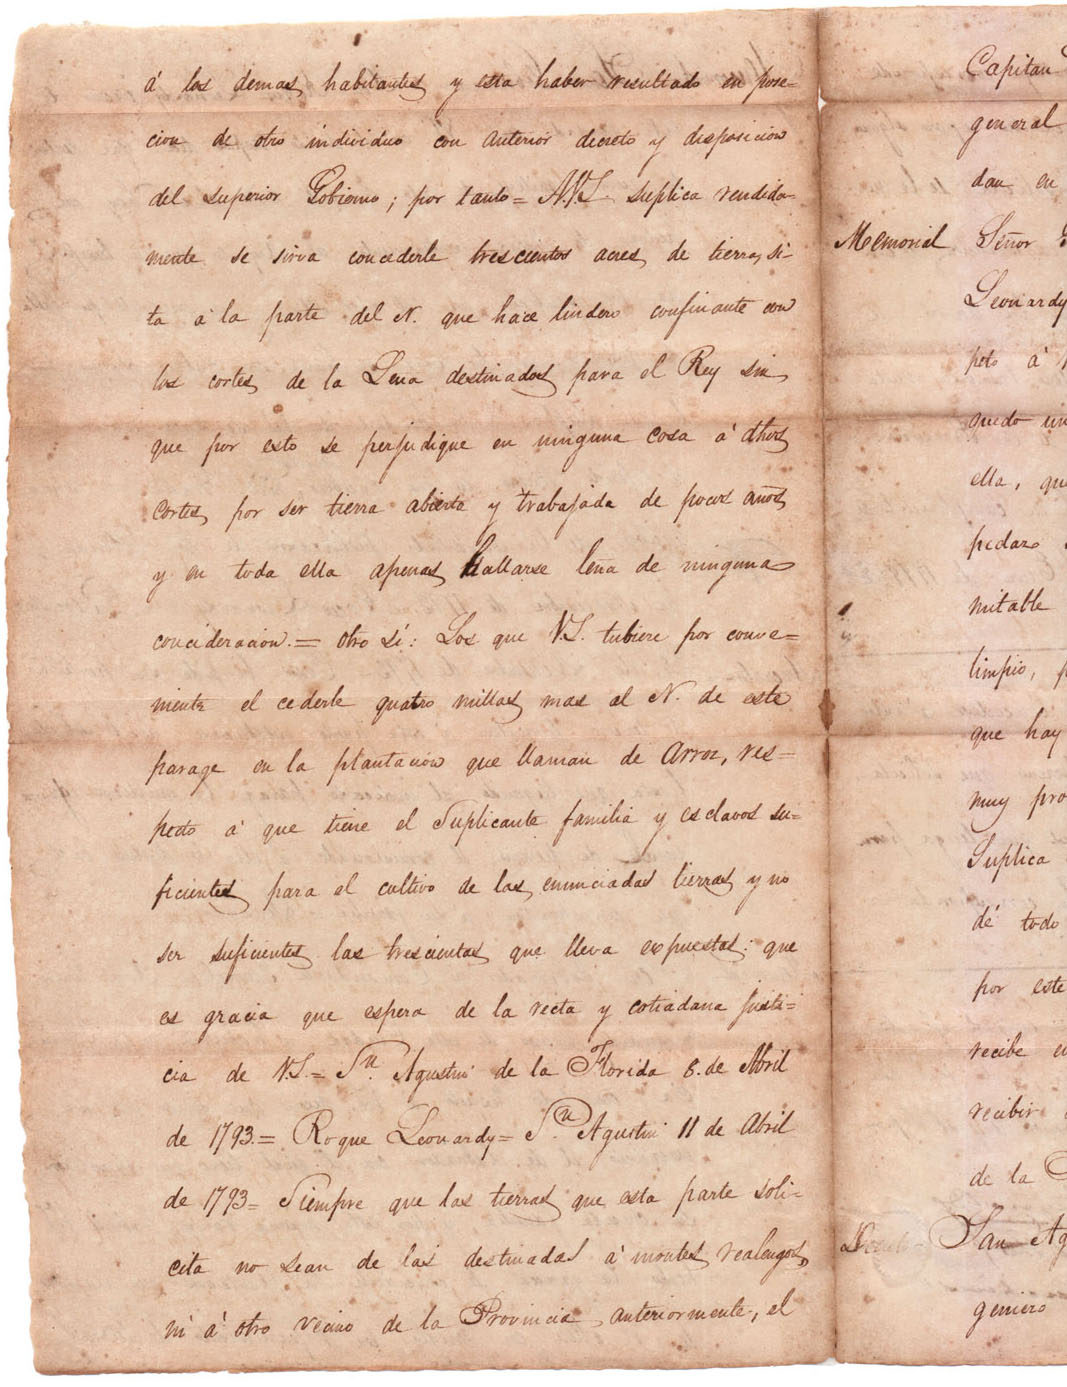 á los demas habitantes y esta haber resultado en pose-
cion de otro individuo con anterior decreto y disposicion
del superior Gobierno; por tanto = A.V.S. suplica rendida-
mente se sirva concederle trescientos acres de tierra, si-
ta á la parte del N. que hace lindero confinante con
los cortes de la Lena destinados para el Rey sin
que por esto se perjudique en ninguna cosa á dhos
cortes por ser tierra abierta y trabajada de pocos años
y en toda ella apenas hallarse leña de ninguna
concideracion. = otro si: Los que V.S. tubiere por conve=
niente el cederle quatro millas mas al N. de este
parage en la plantacion que llaman de Arroz, res-
pecto á que tiene el Suplicante familia y esclavos su-
ficientes para el cultivo de las enunciadas tierras y no
ser suficientes las trescientas que lleva expuestas: que
es gracia que espera de la recta y cotiadana justi-
cia de V.S. = Sn. Agustin de la Florida 8. de Abril
de 1793. = Roque Leonardy = Sn. Agustin 11 de Abril
de 1793 = Siempre que las tierras que esta parte soli-
cita no sean de las destinadas á montes realengos,
ni á otro vecino de la Provincia anteriormente, el
Capitan
general
dan en
Memorial Señor
Leonardy
peto á
quedo un
ella, qu
pedazo
mitable
limpio, p
que hay
muy pro
Suplica
dé todo
por este
recibe en
recibir
de la
San Ag
geniero